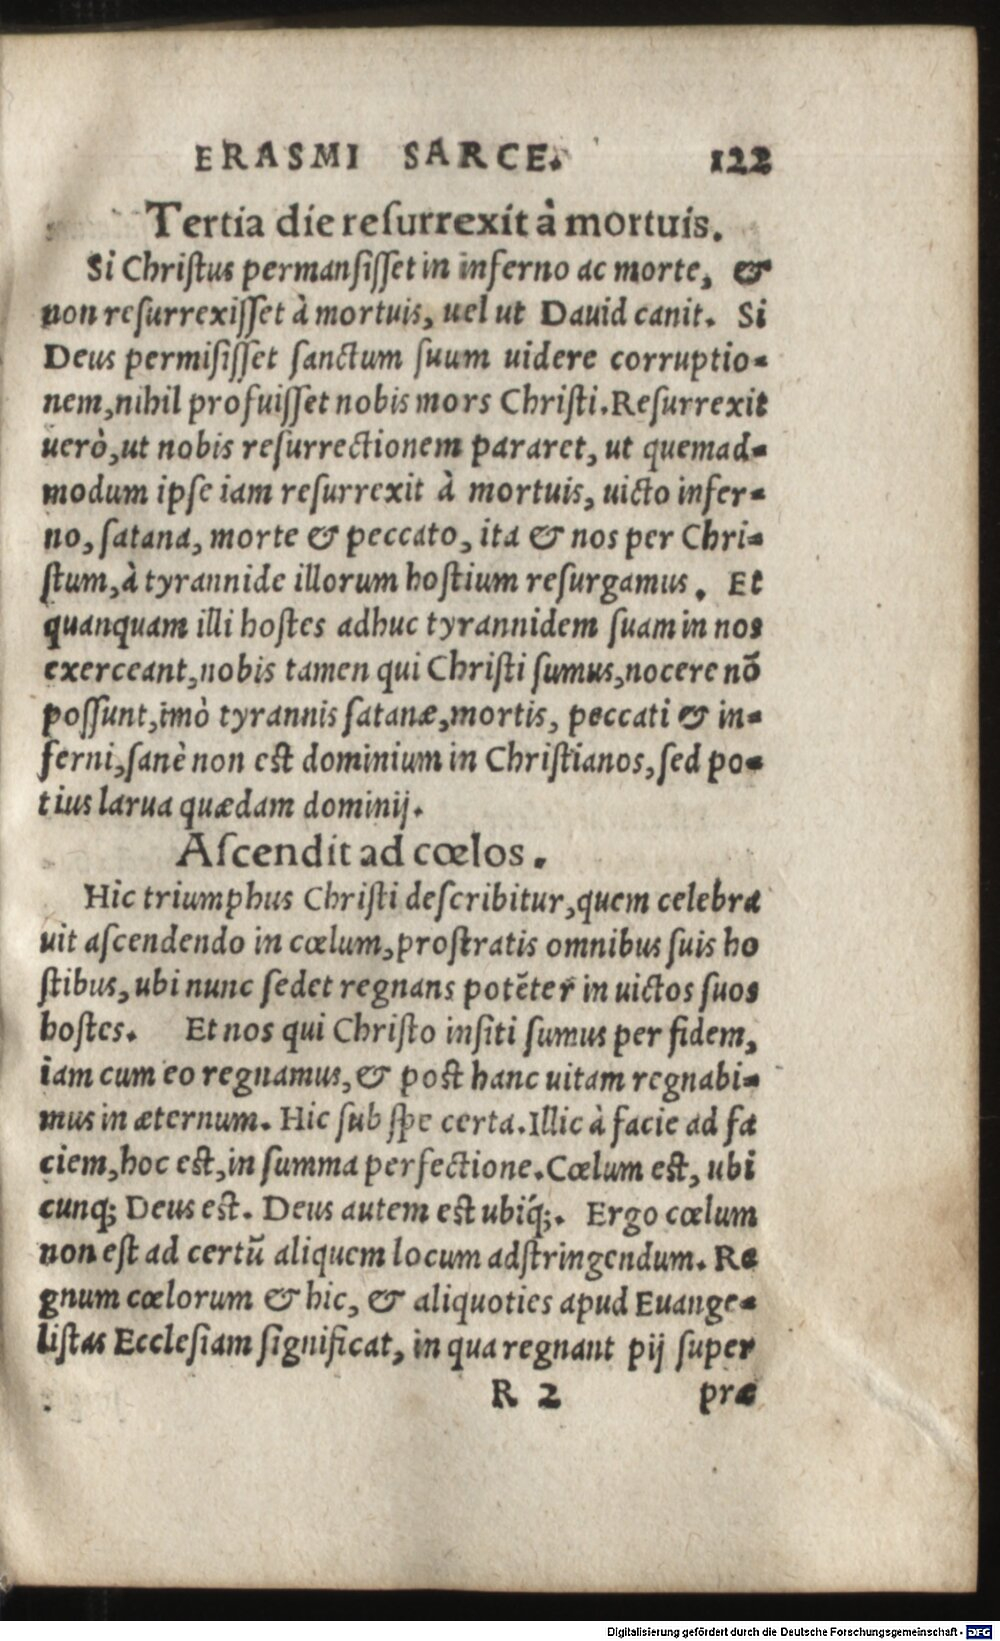 ERASMI SARCE. 122
Tertia die reſurrexit à mortuis.
Si Chriſtus permanſiſſet in inferno ac morte, &
non reſurrexiſſet à mortuis, uel ut Dauid canit. Si
Deus permiſiſſet ſanctum ſuum uidere corruptio-
nem, nihil profuiſſet nobis mors Chriſti. Reſurrexit
uerò, ut nobis reſurrectionem pararet, ut quemad-
modum ipſe iam reſurrexit à mortuis, uicto infer-
no, ſatana, morte & peccato, ita & nos per Chri-
ſtum, à tyrannide illorum hoſtium reſurgamus. Et
quanquam illi hoſtes adhuc tyrannidem ſuam in nos
exerceant, nobis tamen qui Chriſti ſumus, nocere nō
poſſunt, imò tyrannis ſatanæ, mortis, peccati & in-
ferni, ſanè non eſt dominium in Chriſtianos, ſed po-
tius larua quædam dominij.
Aſcendit ad cœlos.
Hic triumphus Chriſti deſcribitur, quem celebra
uit aſcendendo in cœlum, proſtratis omnibus ſuis ho
ſtibus, ubi nunc ſedet regnans potēter in uictos ſuos
hoſtes. Et nos qui Chriſto inſiti ſumus per fidem,
iam cum eo regnamus, & poſt hanc uitam regnabi-
mus in æternum. Hic ſub ſpe certa. Illic à facie ad fa
ciem, hoc eſt, in ſumma perfectione. Cœlum eſt, ubi
cunq; Deus eſt. Deus autem eſt ubiq́;. Ergo cœlum
non eſt ad certū aliquem locum adſtringendum. Re
gnum cœlorum & hic, & aliquoties apud Euange-
liſtas Eccleſiam ſignificat, in qua regnant pij ſuper
R 2 præ
Digitalisierung gefördert durch die Deutsche Forschungsgemeinschaft - DFG